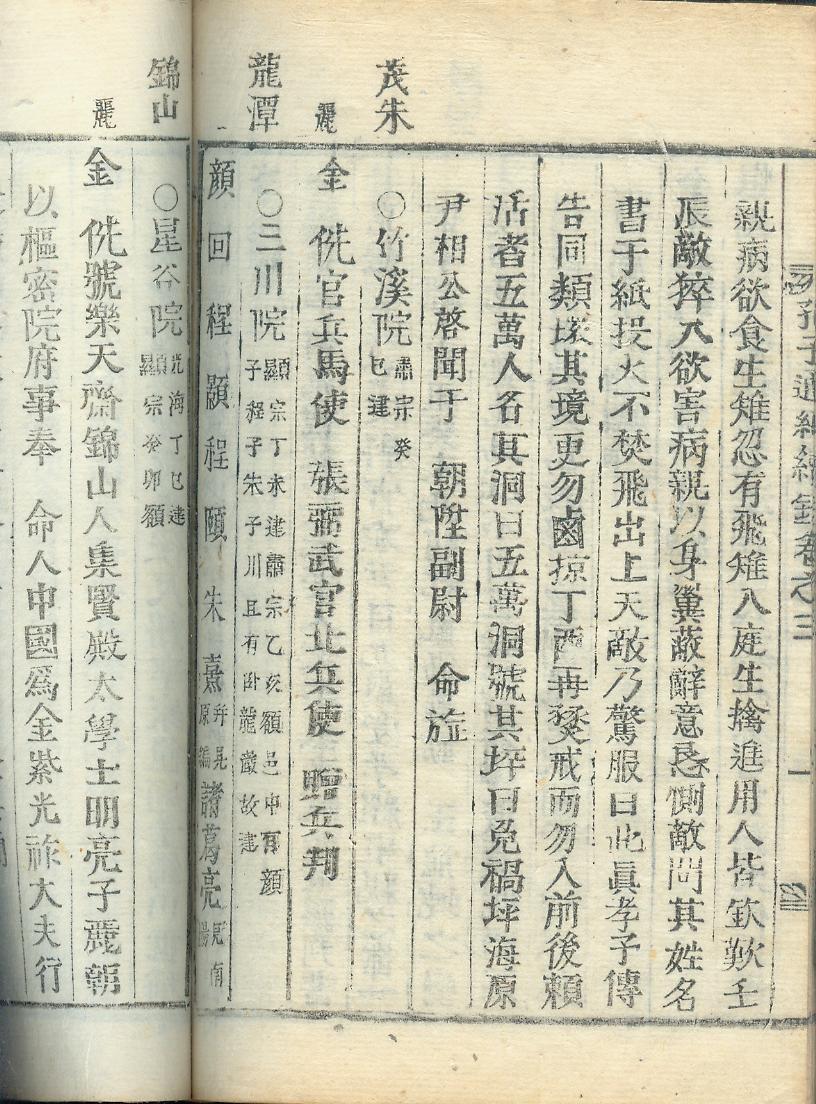 孔子通紀續錄卷之三 一
親病欲食生雉忽有飛雉入庭生擒進用人皆欽歎壬
辰敵猝入欲害病親以身翼蔽辭意懇惻敵問其姓名
書于紙投火不焚飛出上天敵乃驚服曰此眞孝子傳
告同類環其境更勿鹵掠丁酉再燹戒而勿入前後賴
活者五萬人名其洞曰五萬洞號其坪曰免禍坪海原
尹相公啓聞于 朝陞副尉 命旌
茂朱
○竹溪院 肅宗癸
巳建
麗
金 侁官兵馬使 張弼武官北兵使 贈兵判
龍潭
○三川院 顯宗丁未建肅宗乙亥額邑中有顏
子程子朱子川且有臥龍巖故建
顏回 程顥 程頤 朱熹 幷見
原編 諸葛亮 見南
陽
錦山
○星谷院 光海丁巳建
顯宗癸卯額
麗
金 侁號樂天齋錦山人集賢殿太學士明亮子麗朝
以樞密院府事奉 命入中國爲金紫光祿大夫行